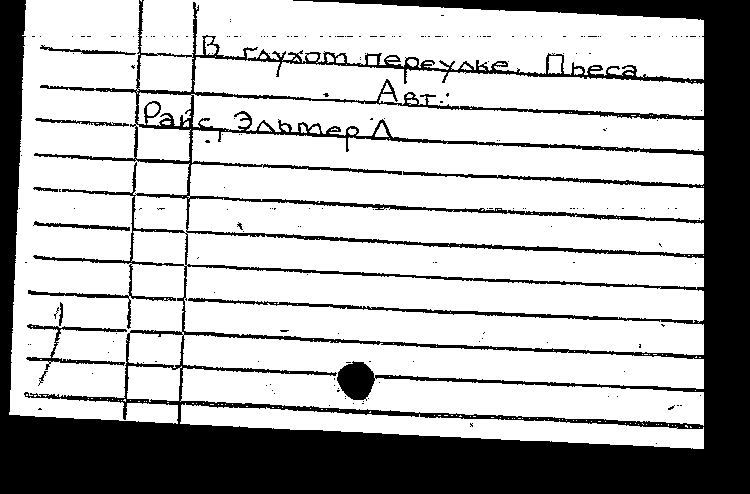 В глухом переулке. Пьеса.
Авт.:
Райс, Эльмер Л.